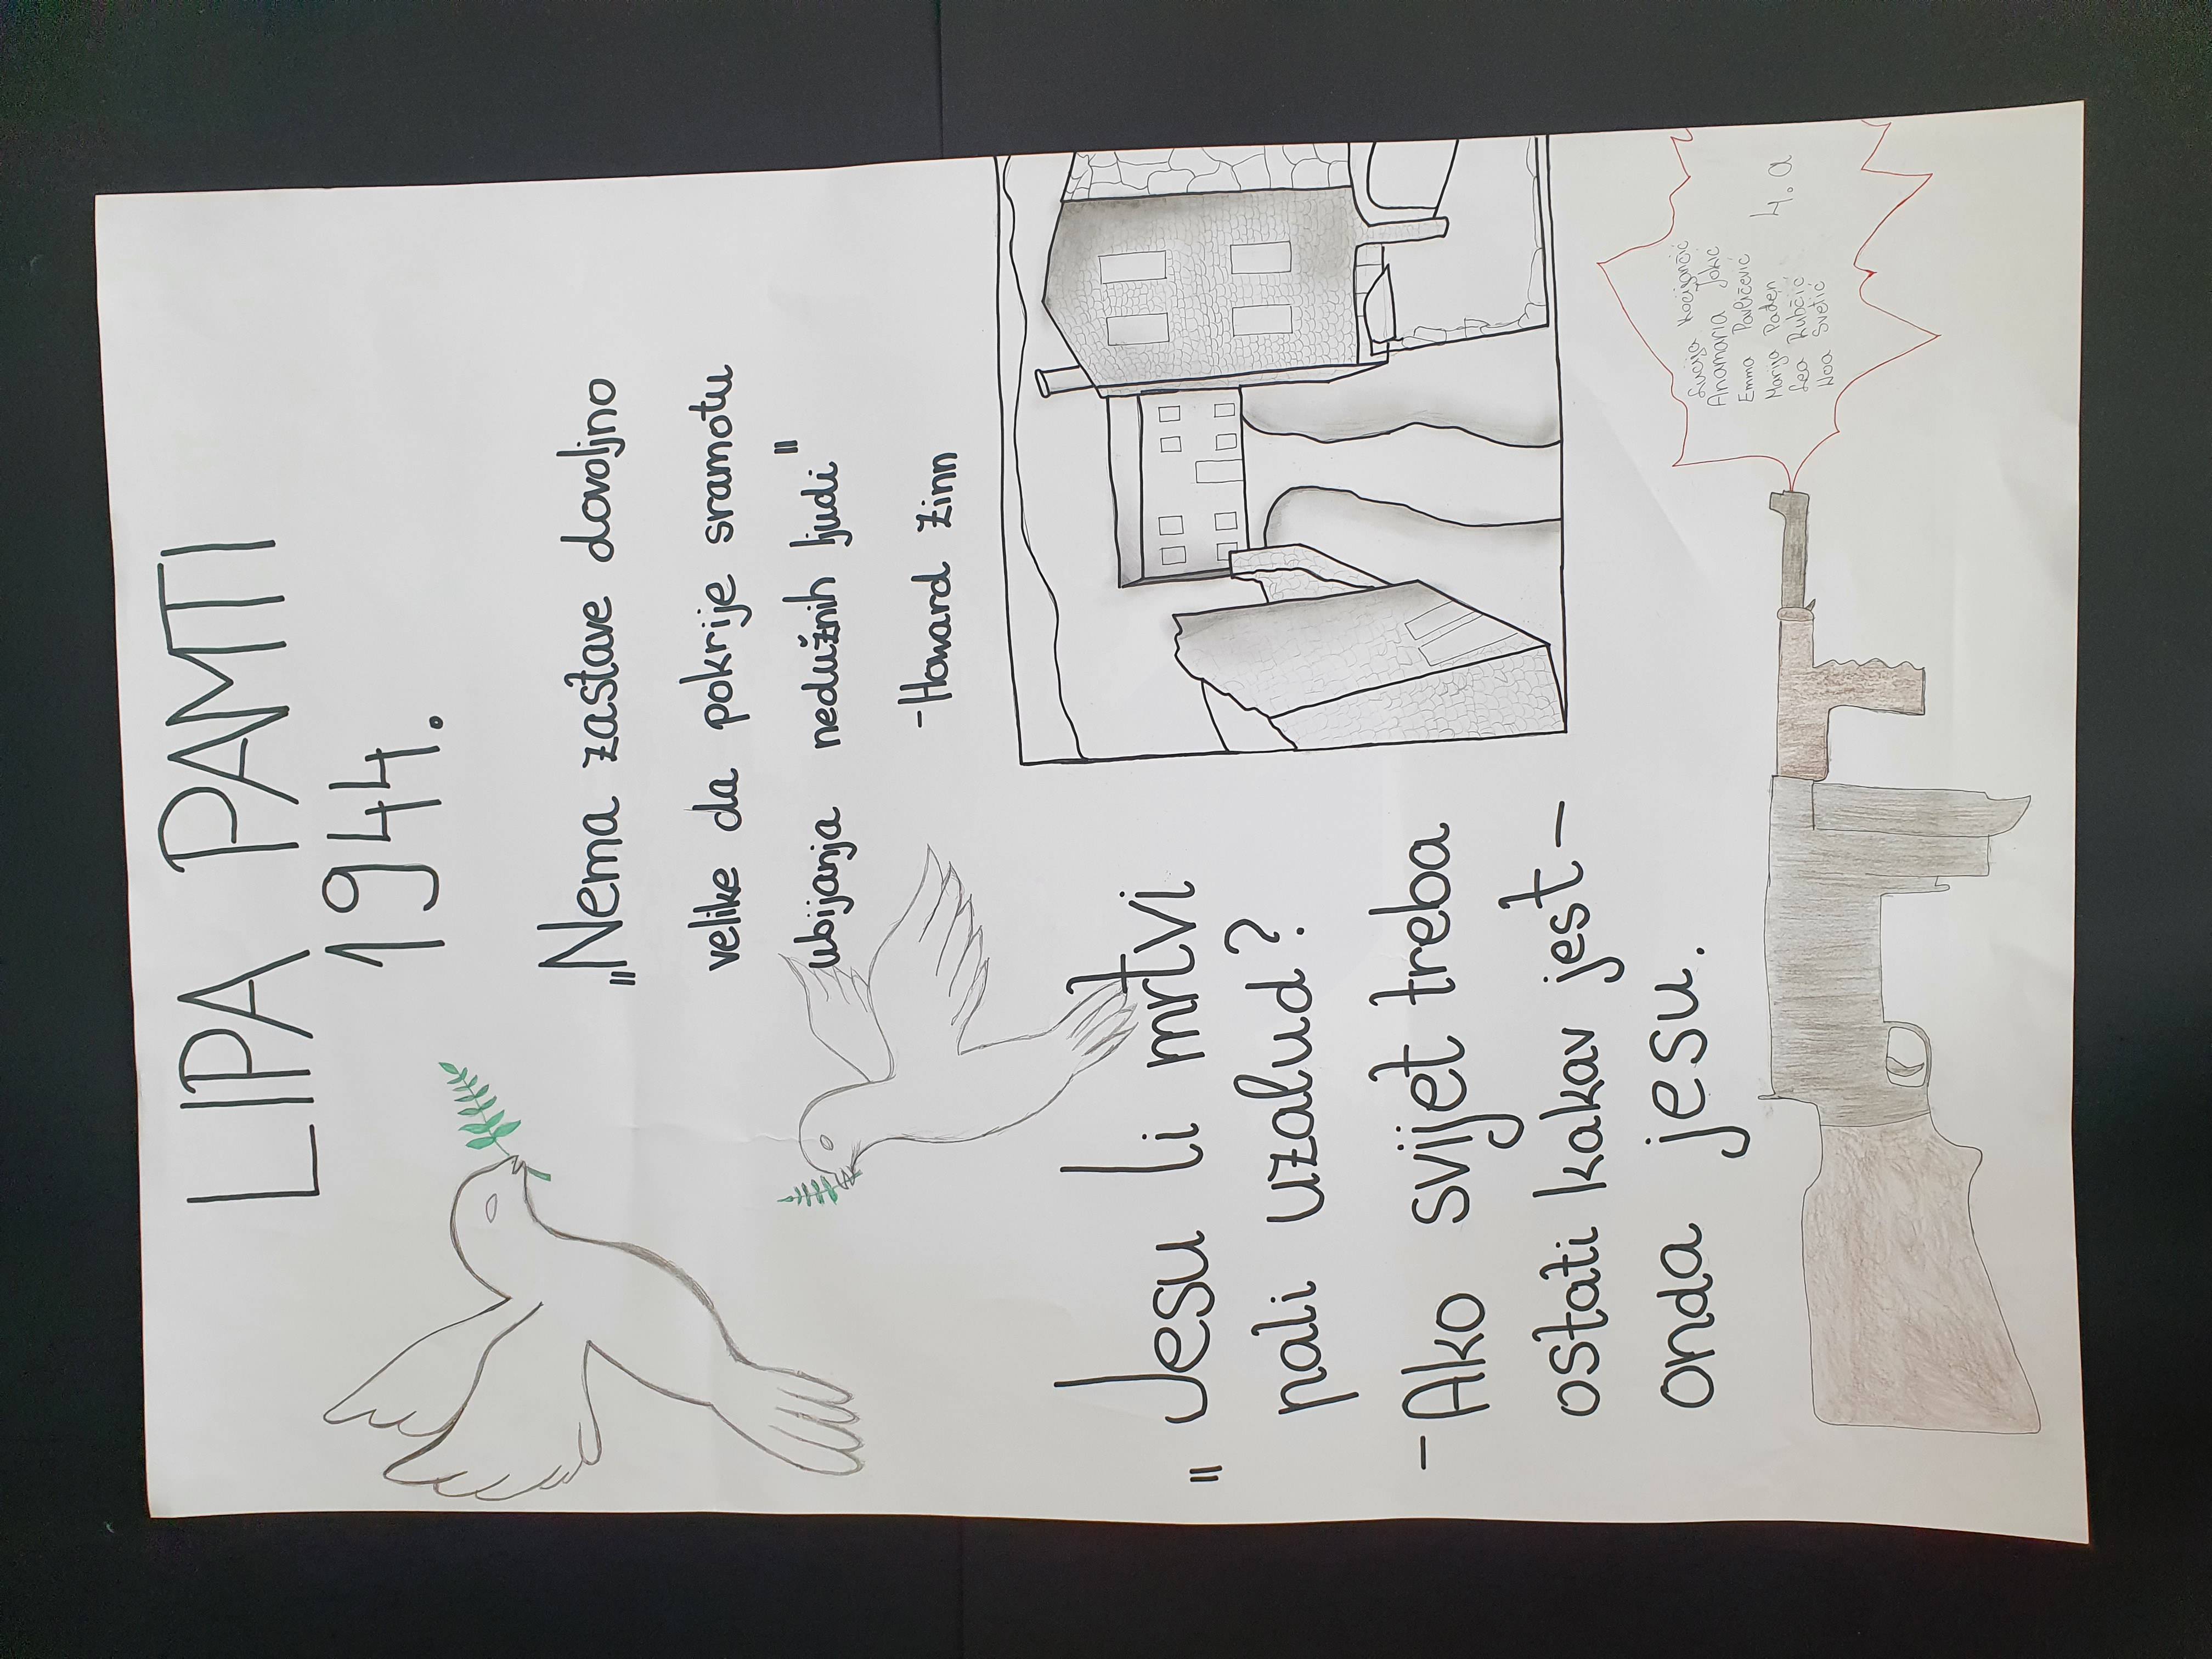 LIPA PAMTI
1944.
„Nema zastave dovoljno
velike da pokrije sramotu
ubijanja nedužnih ljudi"
-Howard Zinn
" Jesu li mrtvi
pali uzalud?
-Ako svijet treba
ostati kakav jest-
onda jesu.
Lucija Kocijančić
Anamaria Jokić
Emma Pavličević
Marija Pađen
Lea Rubčić
Nora Svetić
4.a